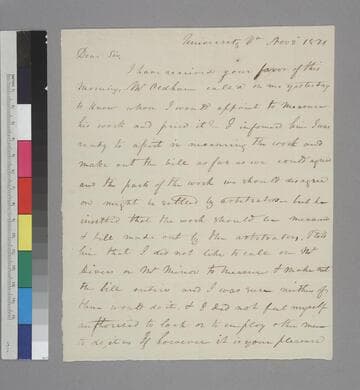 University Va Nov 2d 1821
Dear Sir,
I have received your favor of this
morning, Mr Oldham called on me yesterday
to know whom I would appoint to measure
his work and price it? I informed him I was
ready to assist in measuring the work and
make out the bill as far as we could agree
and the parts of the work we should disagree
on might be settled by arbitrators but he
insisted that the work should be measured
& bill made out by the arbitrators. I told
him that I did not like to call on Mr
or Mr Minor to measure & make out
the bill entire and I was sure neither of
them would do it, & I did not feel myself
authorised to look or to employ other men
to do it as If however it is your pleasure